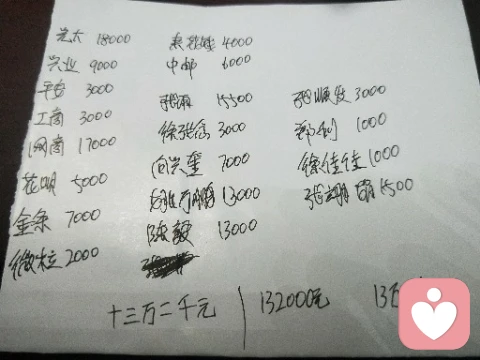 光大 18000
兴业 9000
平安 3000
工商 3000
网商 17000
花呗 5000
金条 7000
微粒 2000
4000
中邮 6000
15500
徐张磊 3000
向兴玺 7000
13000
陈毅 13000
张顺发 3000
郑利 1000
徐佳佳 1000
1500
十三万二千元
132000元
13